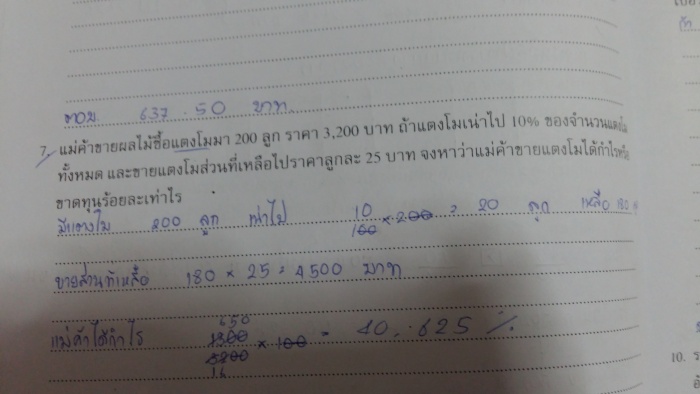 ตอบ 637.50 บาท
7. แม่ค้าขายผลไม้ซื้อแตงโมมา 200 ลูก ราคา 3,200 บาท ถ้าแตงโมเน่าไป 10% ของจำนวนแตงโม
ทั้งหมด และขายแตงโมส่วนที่เหลือไปราคาลูกละ 25 บาท จงหาว่าแม่ค้าขายแตงโมได้กำไรหรือ
ขาดทุนร้อยละเท่าไร
มีแตงโม 200 ลูก เน่าไป 10/100 × 200 = 20 ลูก เหลือ 180
ขายส่วนที่เหลือ 180 × 25 = 4500 บาท
650
แม่ค้าได้กำไร 1300/3200 × 100 = 40.625 %
16
10.